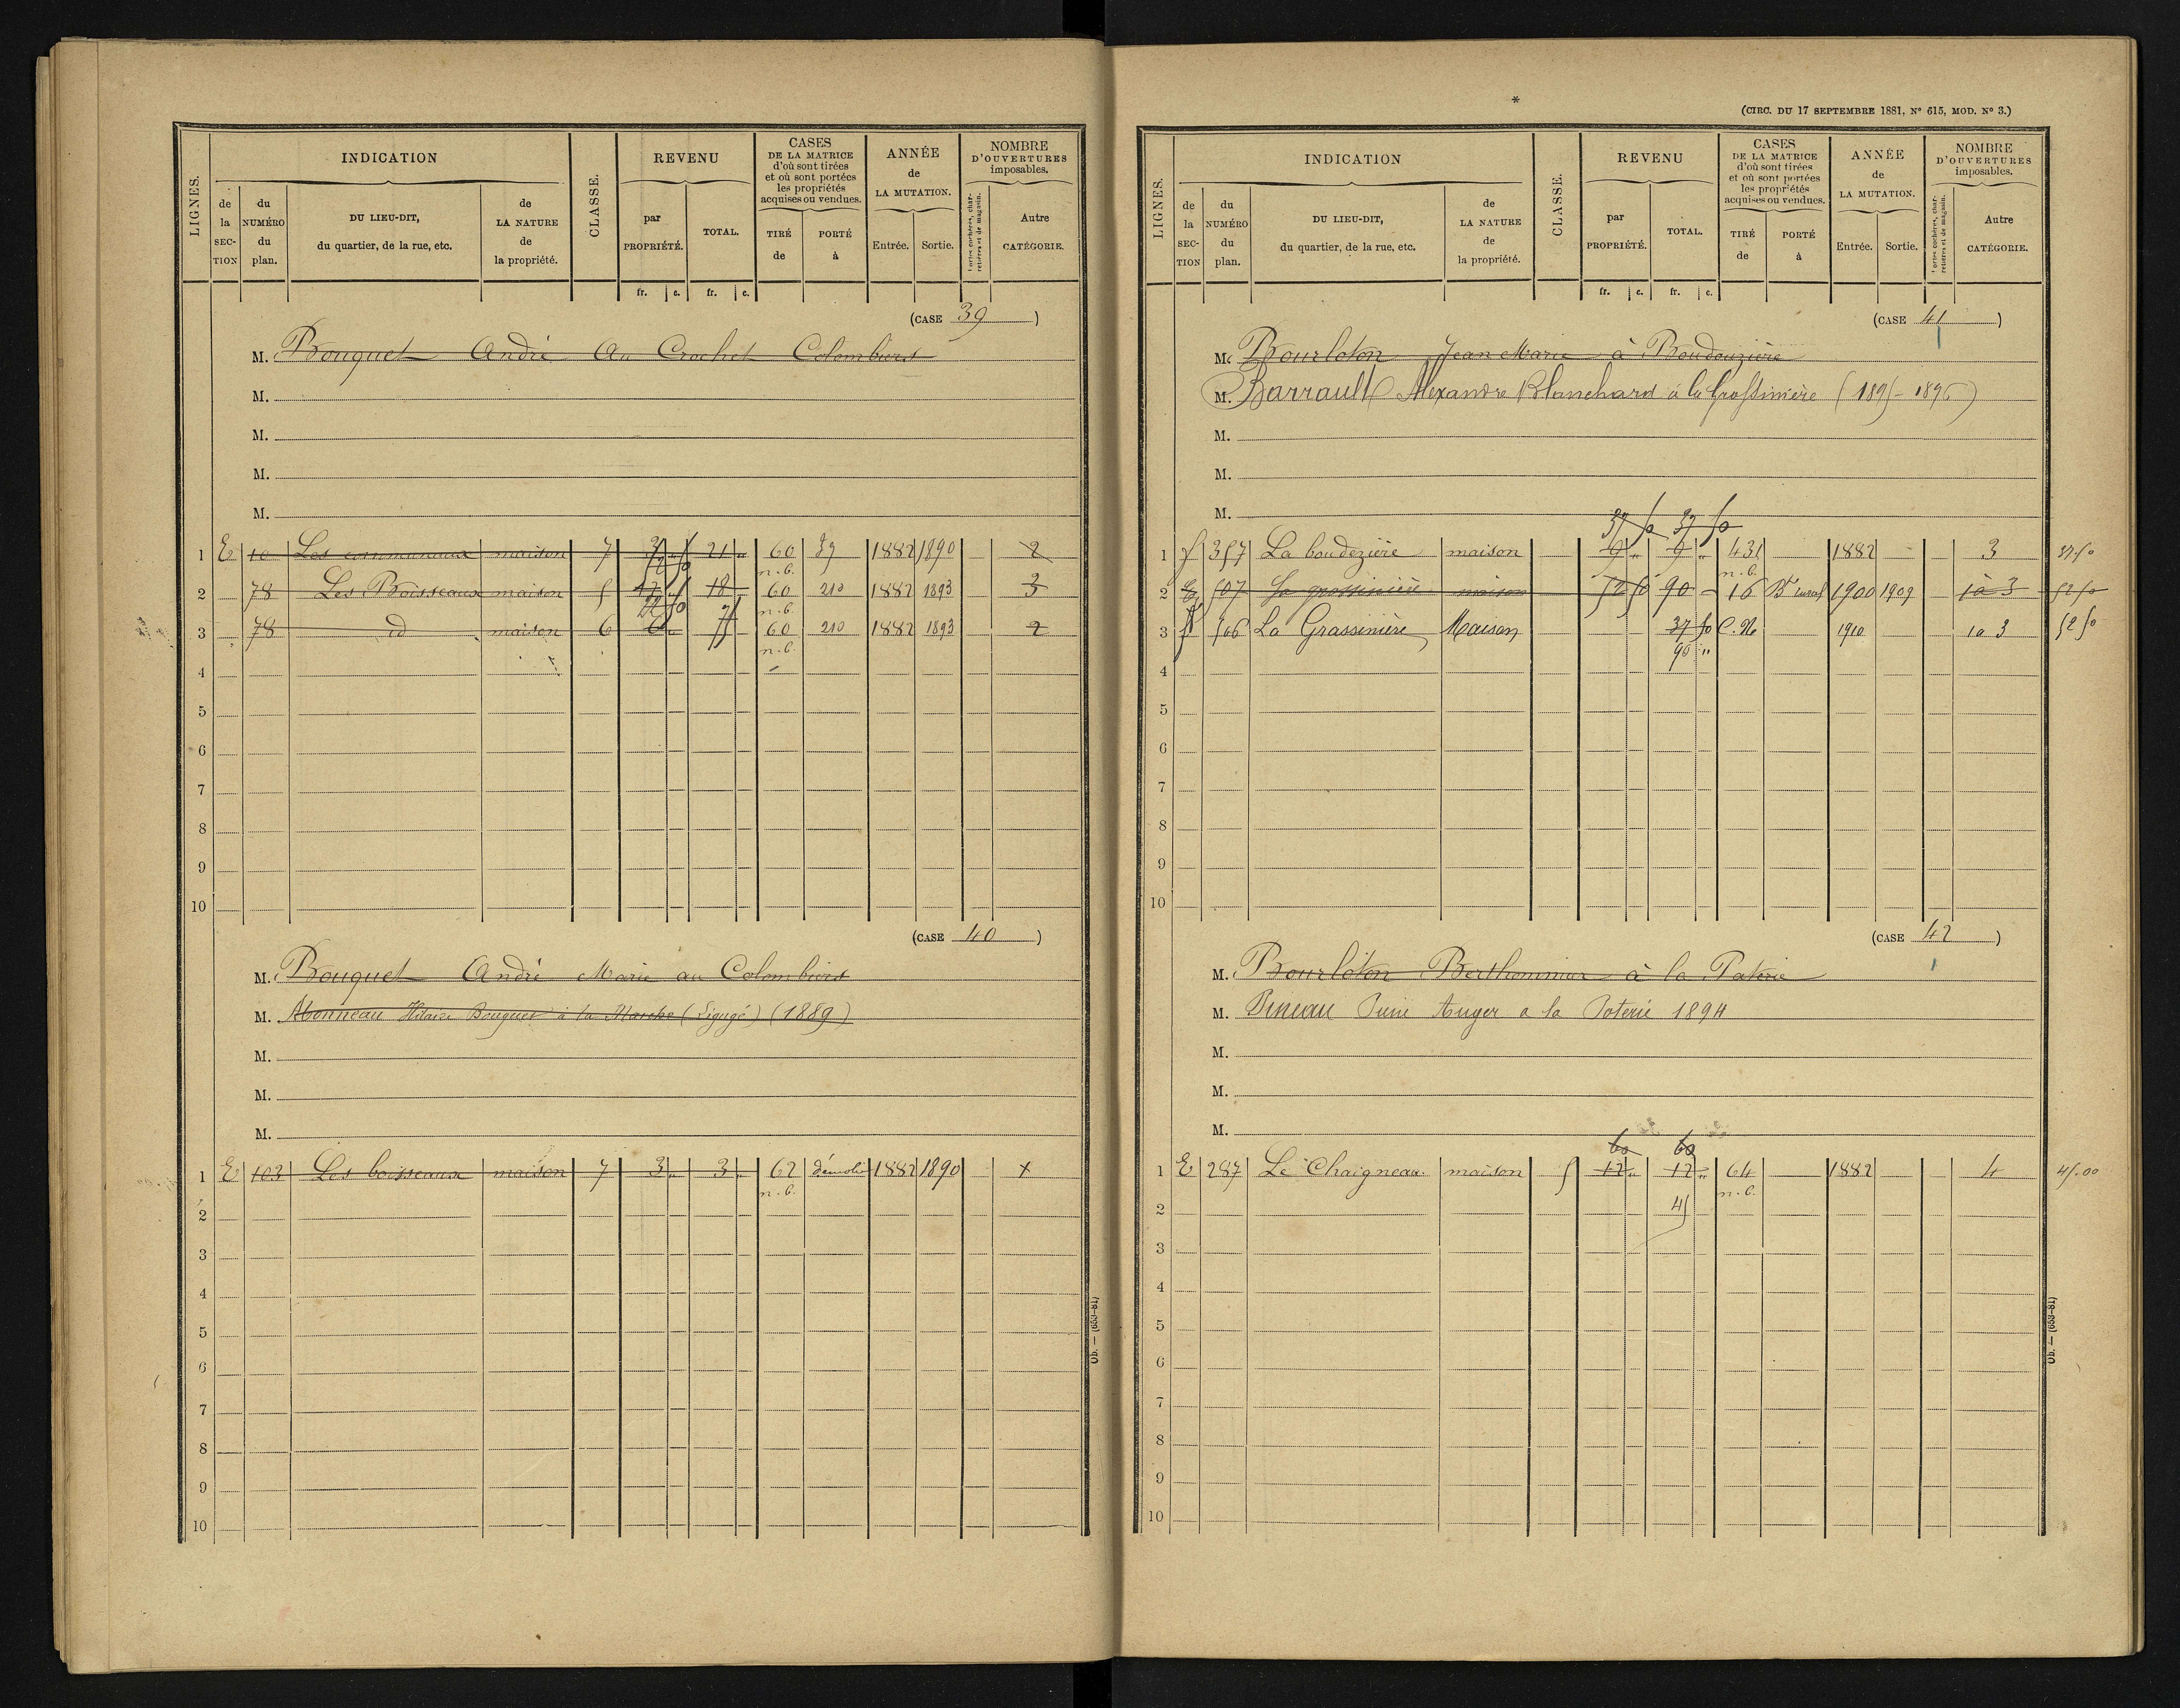 LIGNES.
INDICATION
CLASSE.
REVENU
CASES
DE LA MATRICE
d'où sont tirées
et où sont portées
les propriétés
acquises ou vendues.
ANNÉE
de
LA MUTATION.
NOMBRE
D'OUVERTURES
imposables.
de la SECTION
du NUMÉRO du plan.
DU LIEU-DIT,
du quartier, de la rue, etc.
de LA NATURE de la propriété.
par PROPRIÉTÉ.
TOTAL.
TIRÉ de
PORTÉ à
Entrée.
Sortie.
Portes cochères, charretières et de magasin.
Autre CATÉGORIE.
fr. c. fr. c.
(CASE 39)
M. Bouquet André Au Crochet Colombiers
M.
M.
M.
M.
1 E 10 Les communaux maison 7 21 " 60 39 1882 1890 2
n.b.
2 78 Les Boisseaux maison 5 18 60 210 1882 1893 3
n.b.
3 78 id maison 6 6 " 75 60 210 1882 1893 2
n.b.
4
5
6
7
8
9
10
(CASE 40)
M. Bouquet André Marie au Colombiers
M. Abonneau Hilaire Bouquet à la Marche (Ligugé) (1889)
M.
M.
M.
1 E 103 Les boisseaux maison 7 3 " 3 " 62 démoli 1882 1890 x
n.b.
2
3
4
5
6
7
8
9
10
Ob. — (659-81)
*
(CIRC. DU 17 SEPTEMBRE 1881, N° 615, MOD. N° 3.)
LIGNES.
INDICATION
CLASSE.
REVENU
CASES
DE LA MATRICE
d'où sont tirées
et où sont portées
les propriétés
acquises ou vendues.
ANNÉE
de
LA MUTATION.
NOMBRE
D'OUVERTURES
imposables.
de la SECTION
du NUMÉRO du plan.
DU LIEU-DIT,
du quartier, de la rue, etc.
de LA NATURE de la propriété.
par PROPRIÉTÉ.
TOTAL.
TIRÉ de
PORTÉ à
Entrée.
Sortie.
Portes cochères, charretières et de magasin.
Autre CATÉGORIE.
fr. c. fr. c.
(CASE 41)
M. Bourloton Jean Marie à Boudouzière
M. Barrault Alexandre Blanchard à la Grossinière (1895-1896)
M.
M.
M.
37 50 37 50
1 357 La boudezière maison 9 " 9 " 431 1882 3 37.50
n.b.
2 507 La grossinière maison 52 50 90 - 16 Bt rural 1900 1909 1 à 3 52 50
3 506 La Grassinière Maison 37 50 C.N. 1910 1 a 3 52 50
90 "
4
5
6
7
8
9
10
(CASE 42)
M. Bourloton Berthommier à la Paterie
M. Pineau Auger a la Poterie 1894
M.
M.
M.
60 60
1 E 287 Le Chaigneau maison 5 12 " 12 " 64 1882 4 45.00
n.b.
2 45
3
4
5
6
7
8
9
10
Ob. — (659-81)